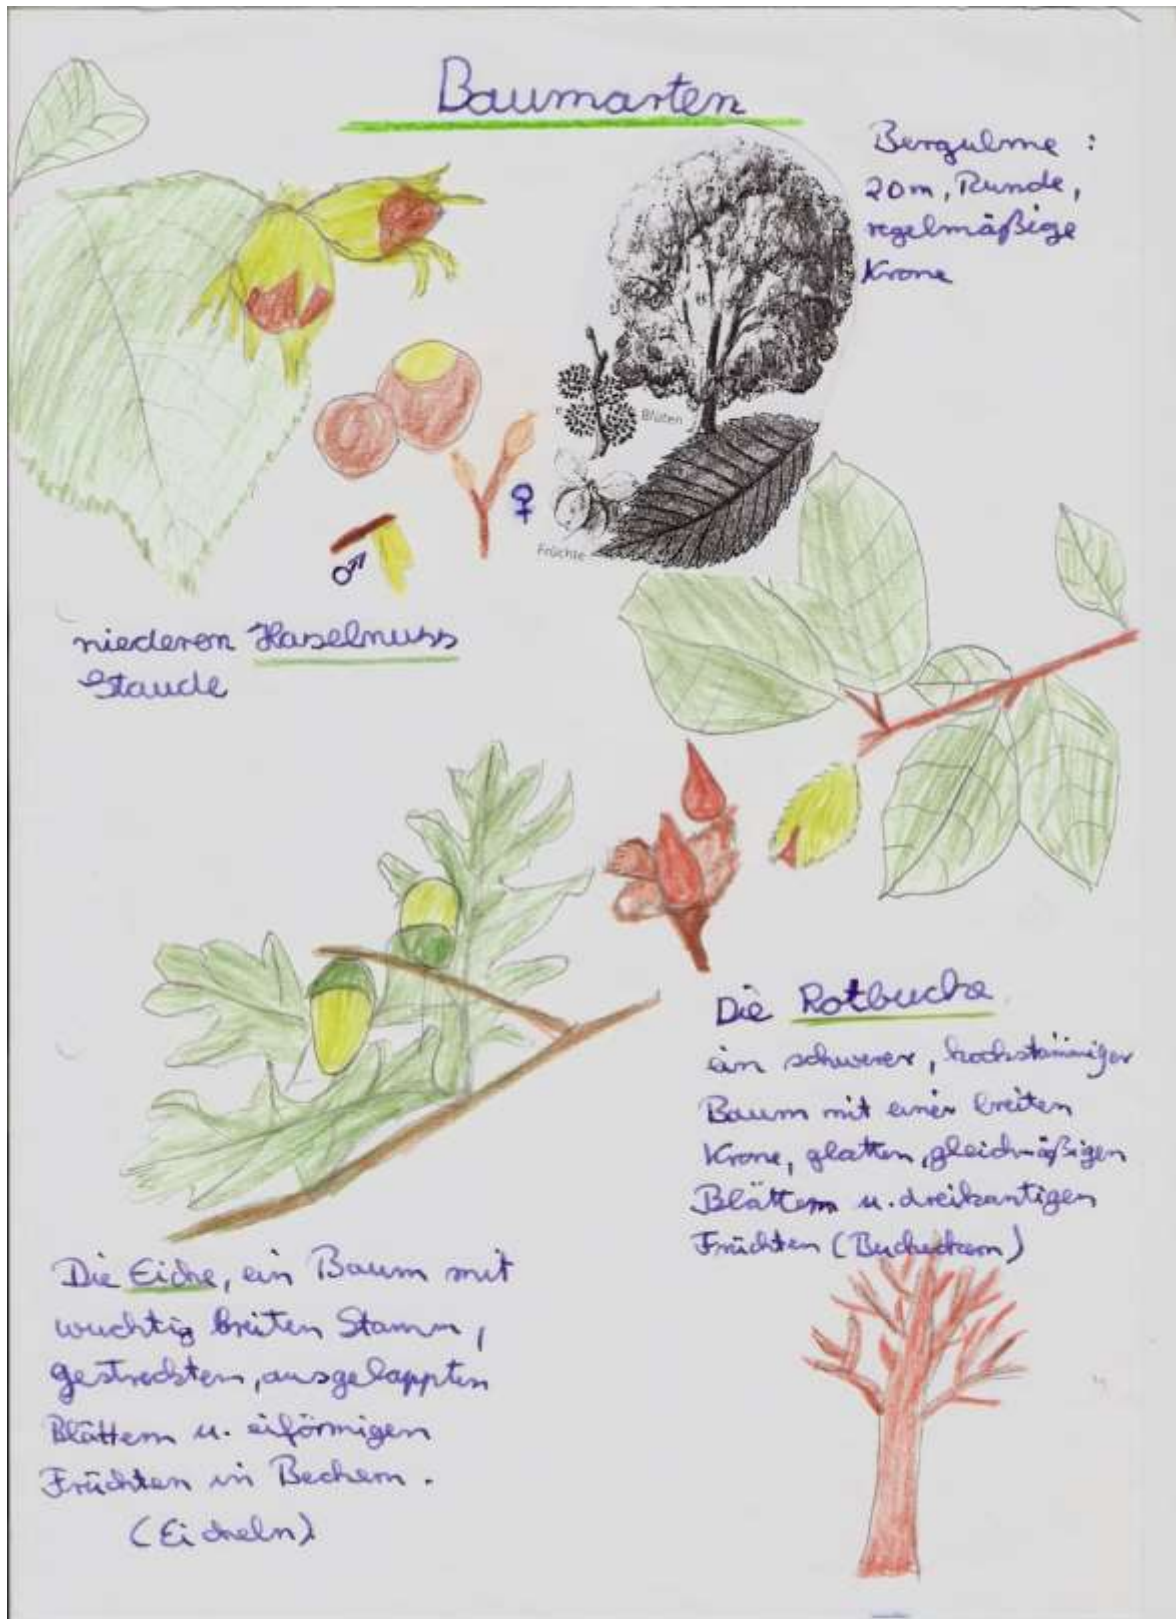 Baumarten
Bergulme :
20m, Runde,
regelmäßige
Krone
Blüten
Früchte
♀
♂
niederen Haselnuss
Staude
Die Rotbuche
ein schwerer, hochstämmiger
Baum mit einer breiten
Krone, glatten, gleichmäßigen
Blättern u. dreikantigen
Früchten (Bucheckern)
Die Eiche, ein Baum mit
wuchtig breiten Stamm,
gestreckten, ausgelappten
Blättern u. eiförmigen
Früchten in Bechern.
(Eicheln)